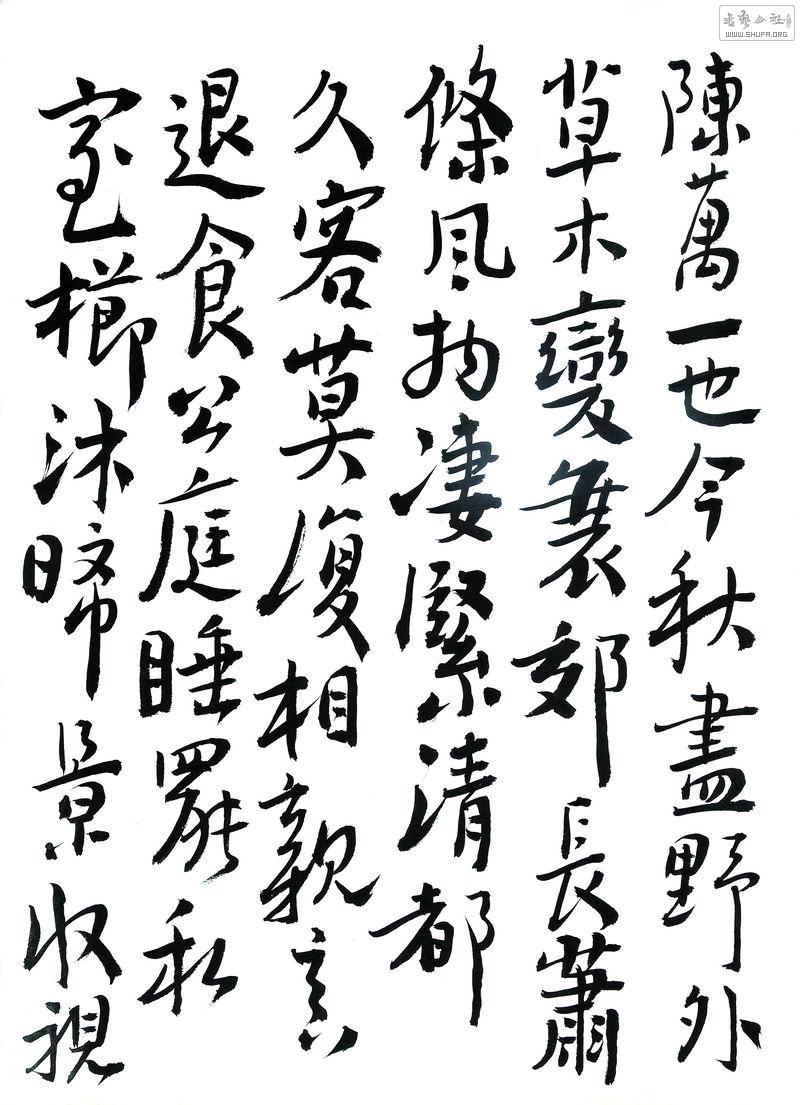 陳萬一也今秋盡野外
草木變衰郊長蕭
條風物凄緊清都
久客莫復相親
退食公庭睡罷私
室櫛沐晞景收視
書藝公社
WWW.SHUFA.ORG